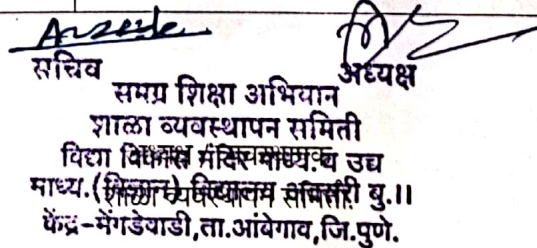 सचिव
अध्यक्ष
समग्र शिक्षा अभियान
शाळा व्यवस्थापन समिती
विद्या विकास मंदिर माध्य. व उच्च
माध्य.(विज्ञान) विद्यालय अवसरी बु.॥
केंद्र-मेंगडेवाडी,ता.आंबेगाव,जि.पुणे.